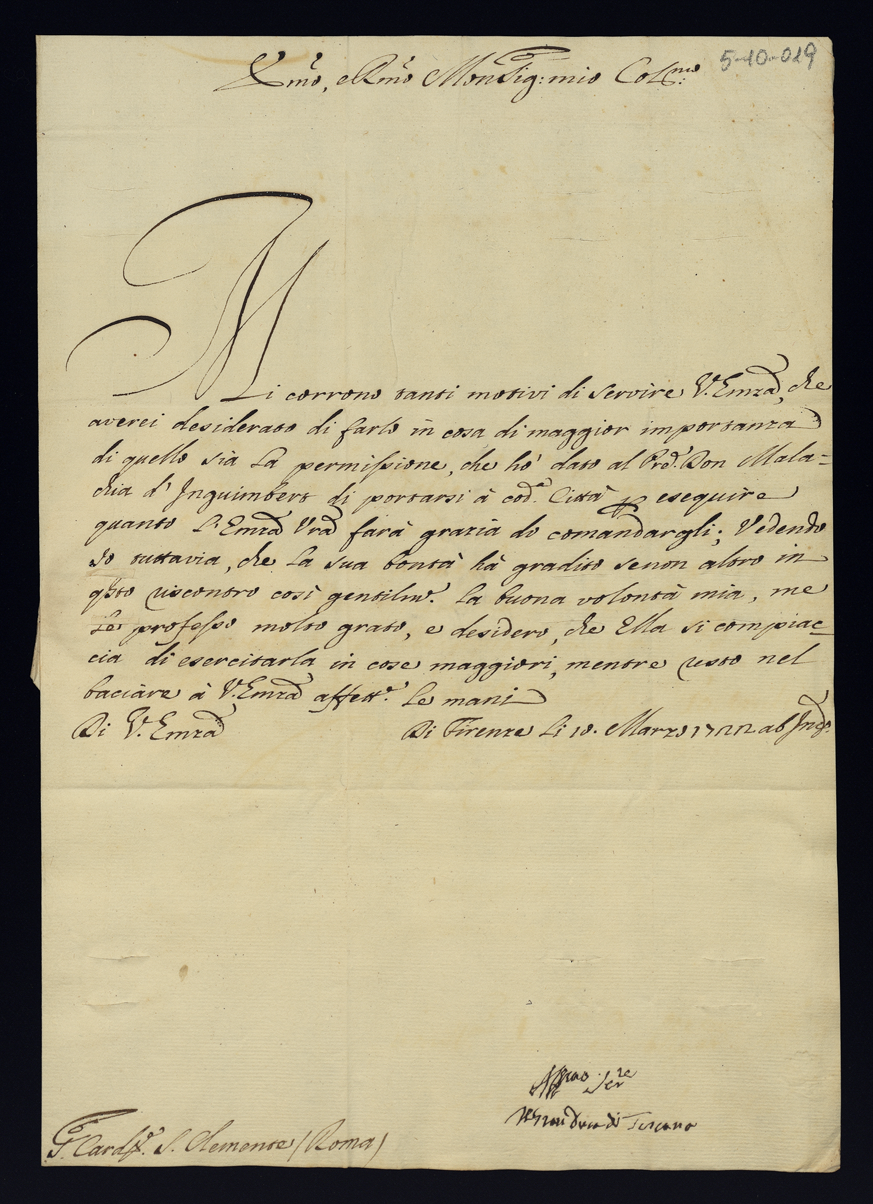 5-10-019
Emõ, e Rmõ Mon Sig: mio Col.mo
Mi corrono tanti motivi di servire V. Emza, che
averei desiderato di farlo in cosa di maggior importanza
di quello sia la permissione, che hò dato al Prd. Don Mala=
chia d'Inguimbert di portarsi à cod.a Città p eseguire
quanto l'Emza Vra farà grazia di comandargli; Vedendo
Io tuttavia, che la sua bontà hà gradito senon altro in
qsto riscontro così gentilm.e la buona volontà mia, me
le professo molto grato, e desidero, che Ella si compiac=
cia di esercitarla in cose maggiori, mentre resto nel
baciare à V. Emza affett.e le mani
Di V. Emza Di Firenze li 10. Marzo 1722 ab Inc.
Affmo Ser.re
Il Gran Duca di Toscana
S. Card. S. Clemente (Roma)